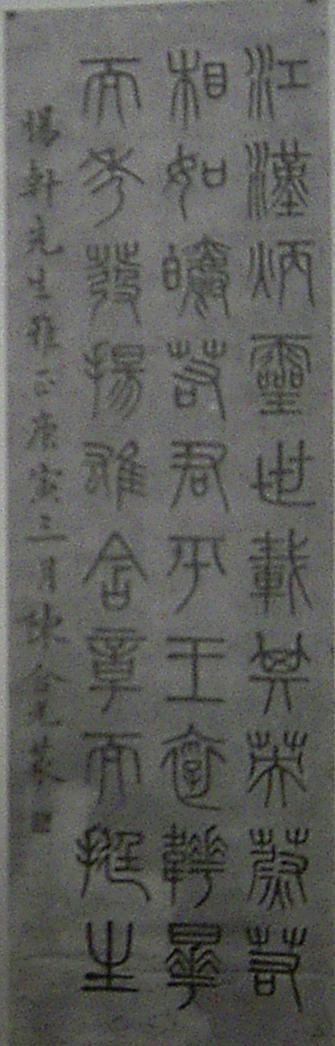 江漢炳靈世載其英蔚若
相如皭若君平王褒韡曄
而秀發揚雄含章而挺生
軒先生雅正庚寅三月陳含光篆